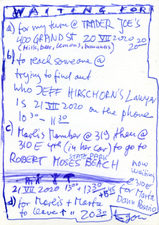 WAITING FOR
a) for my turn @ TRADER JOE'S
400 GRAND ST 20 VII 2020 20
(Milk, beer, lemons, bananas) 20
b) to reach someone @
trying to find out
who JEFF HIRSCHORN'S Lawyer
IS 21 VII 2020 on the phone
10 30 – 11 30
c) Maris Member @ 319 then @
310 E 4yd (in her car) to go to
STATE PARK
ROBERT MOSES BEACH now
waiting
21 VII 2020 13 00 11 30
for Marta
d) for Maris + Marta
to leave 20 30 to go